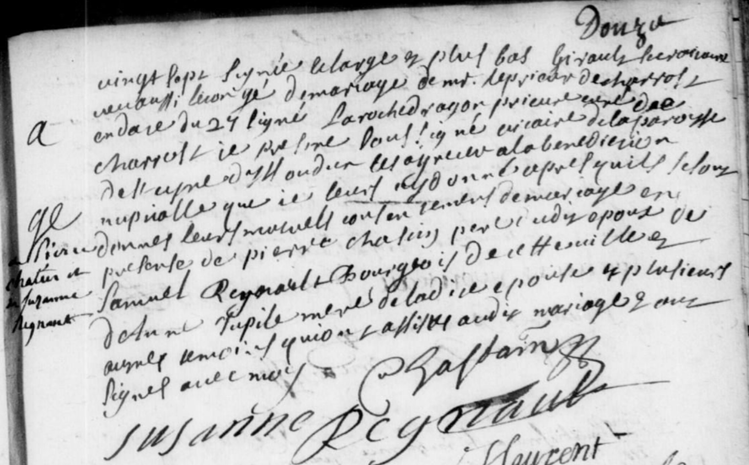 Donze
vingt sept signée lelarge et plus bas Girault secretaire
veu aussi le congé de mariage de mr. le prieur de charrost
en date du 27 signé Larochedragon prieur curé de
charrost je pretre soussigné vicaire de la paroisse
de st cyre d'Issoudun les ay receu a la benediction
nuptialle que je leurs ay donné apres qu'ils se sont
donnes leurs mutuels consentement de mariage en
presense de pierre chastin pere dudit epoux de
Samuel Regnault Bourgeois de cette ville et
de Anne Tupile mere de ladite epouse et plusieurs
autres temoins qui ont assistes audit mariage et ont
signes avec moy
a
ge
Pierre
chatin et
Suzanne
Regnault
Chastain
Susanne Regnault
Laurent